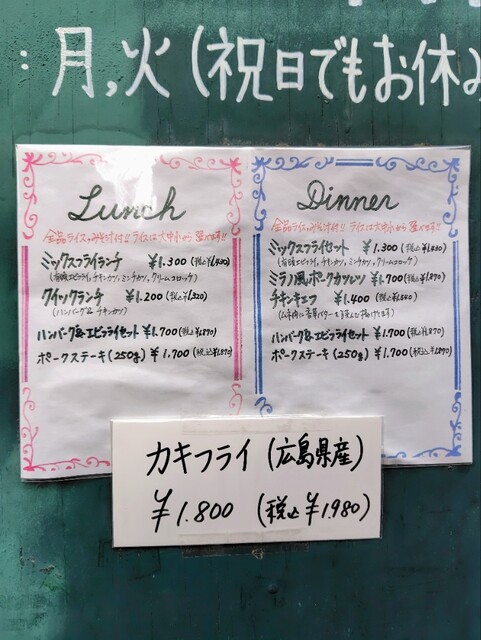 :月,火(祝日でもお休み
Lunch
全品ライス,みそ汁付!! ライスは大中小から選べます!!
ミックスフライランチ ¥1.300(税込¥1,430)
(有頭エビフライ,チキンカツ,ミンチカツ,クリームコロッケ)
クイックランチ ¥1.200(税込¥1,320)
(ハンバーグ& チキンカツ)
ハンバーグ&エビフライセット ¥1.700(税込¥1,870)
ポークステーキ(250g) ¥1.700(税込¥1,870)
Dinner
全品ライス,みそ汁付!! ライスは大中小から選べます!!
ミックスフライセット ¥1.300(税込¥1,430)
(有頭エビフライ,チキンカツ,ミンチカツ,クリームコロッケ)
ミラノ風ポークカツレツ ¥1.700(税込¥1,870)
チキンキエフ ¥1.400(税込¥1,540)
(ムネ肉に香草バターを挟んで揚げます)
ハンバーグ&エビフライセット ¥1.700(税込¥1,870)
ポークステーキ(250g) ¥1.700(税込¥1,870)
カキフライ(広島県産)
¥1.800 (税込¥1.980)